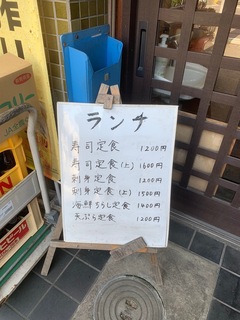 ランチ
寿司定食 1200円
寿司定食(上) 1600円
刺身定食 1200円
刺身定食(上) 1500円
海鮮ちらし定食 1400円
天ぷら定食 1200円